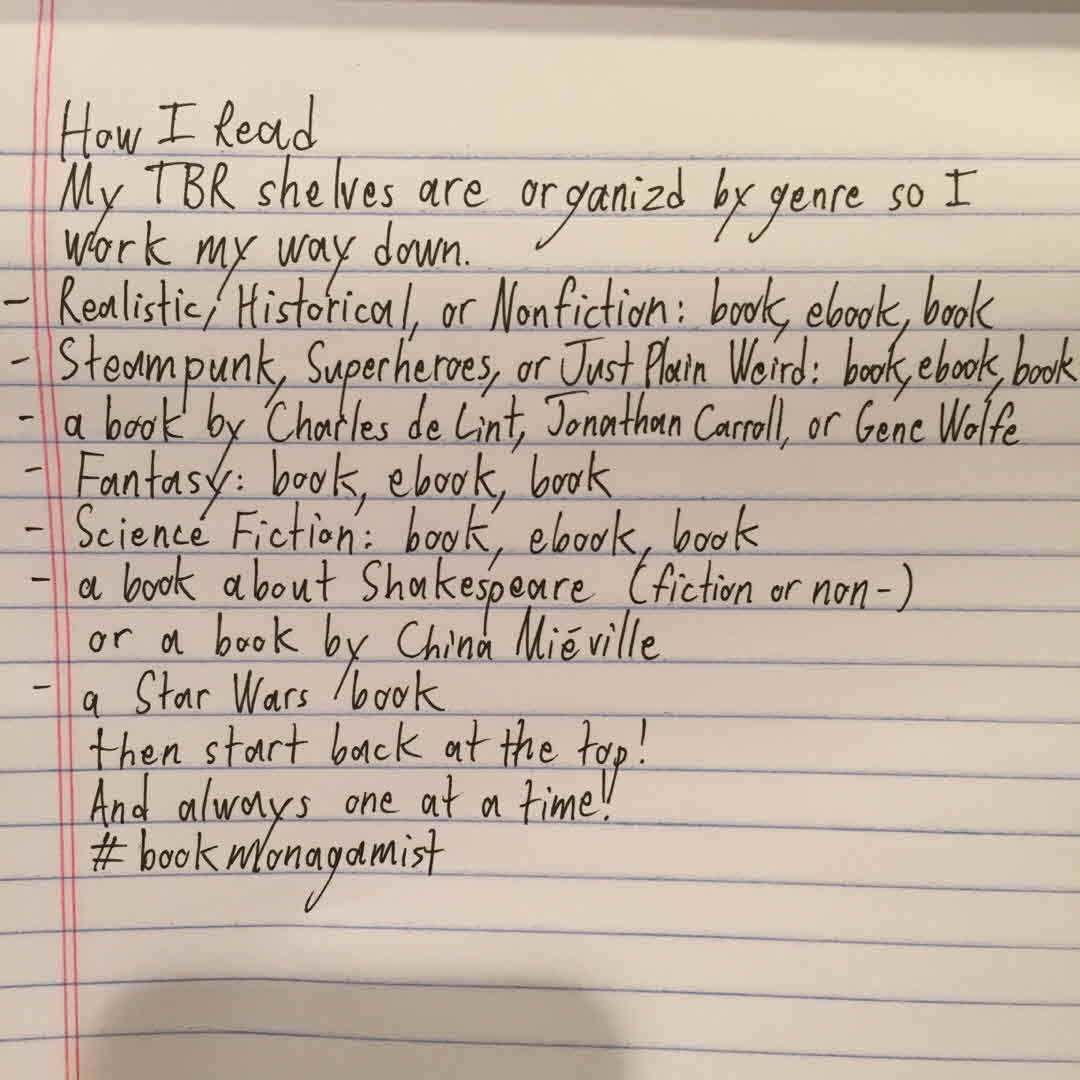 How I Read
My TBR shelves are organizd by genre so I
work my way down.
- Realistic, Historical, or Nonfiction: book, ebook, book
- Steampunk, Superheroes, or Just Plain Weird: book, ebook, book
- a book by Charles de Lint, Jonathan Carroll, or Gene Wolfe
- Fantasy: book, ebook, book
- Science Fiction: book, ebook, book
- a book about Shakespeare (fiction or non-)
or a book by China Miéville
- a Star Wars book
then start back at the top!
And always one at a time!!
#bookmonagamist